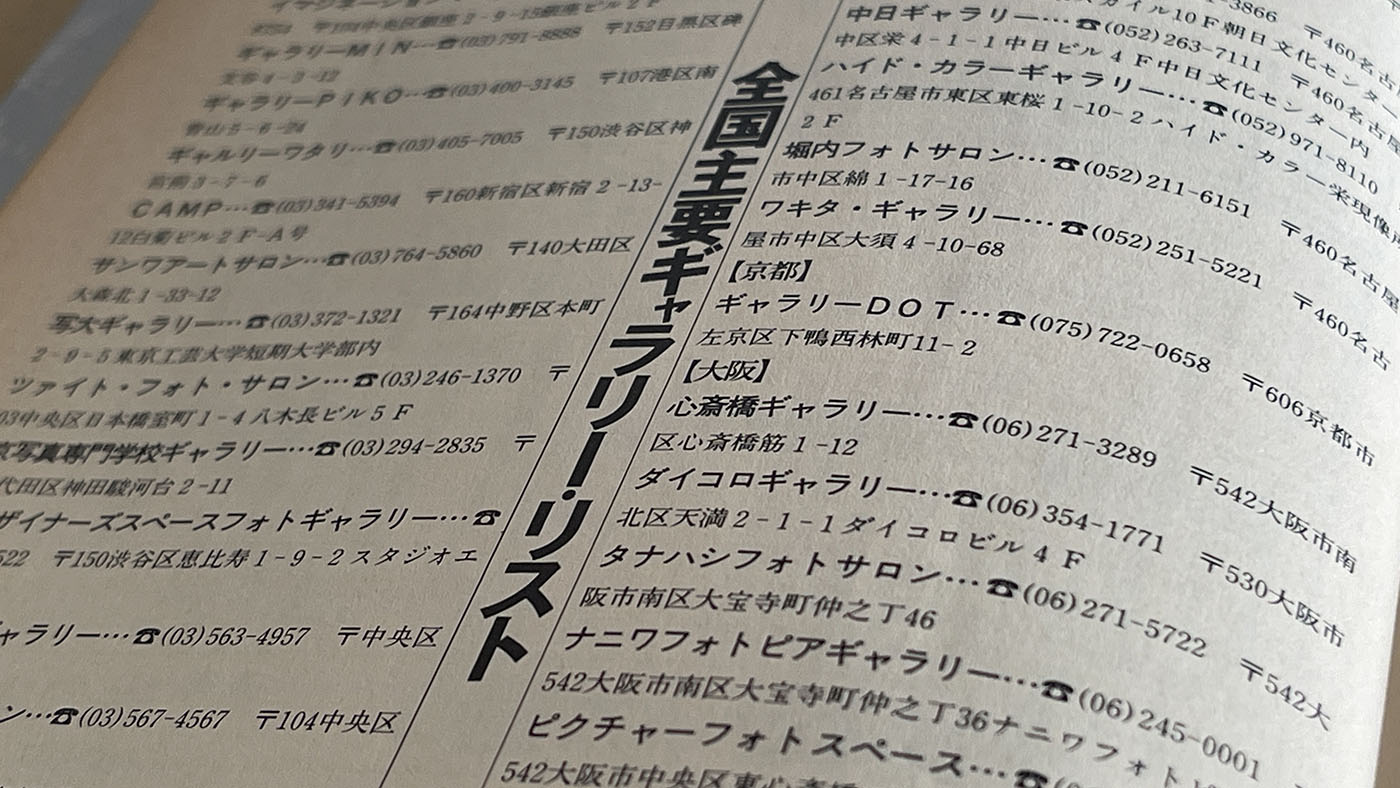 ギャラリーMIN…☎(03)791-8888 〒152目黒区碑
文谷4-3-12
ギャラリーPIKO…☎(03)400-3145 〒107港区南
青山5-6-24
ギャルリーワタリ…☎(03)405-7005 〒150渋谷区神
宮前3-7-6
CAMP…☎(03)341-5394 〒160新宿区新宿2-13-
ビル2F-A号
サンワアートサロン…☎(03)764-5860 〒140大田区
大森北1-33-12
写大ギャラリー…☎(03)372-1321 〒164中野区本町
2-9-5東京工芸大学短期大学部内
ツァイト・フォト・サロン…☎(03)246-1370 〒
03中央区日本橋室町1-4八木長ビル5F
京写真専門学校ギャラリー…☎(03)294-2835 〒
代田区神田駿河台2-11
ザイナーズスペースフォトギャラリー…☎
522 〒150渋谷区恵比寿1-9-2スタジオエ
ャラリー…☎(03)563-4957 〒中央区
ン…☎(03)567-4567 〒104中央区
全国主要ギャラリー・リスト
イル10F朝日文化センター
中日ギャラリー…☎(052)263-7111 〒460名古
中区栄4-1-1中日ビル4F中日文化センター内
ハイド・カラーギャラリー…☎(052)971-8110 〒
461名古屋市東区東桜1-10-2ハイド・カラー栄現像
2F
堀内フォトサロン…☎(052)211-6151 〒460名古屋
市中区錦1-17-16
ワキタ・ギャラリー…☎(052)251-5221 〒460名古
屋市中区大須4-10-68
【京都】
ギャラリーDOT…☎(075)722-0658 〒606京都市
左京区下鴨西林町11-2
【大阪】
心斎橋ギャラリー…☎(06)271-3289 〒542大阪市南
区心斎橋筋1-12
ダイコロギャラリー…☎(06)354-1771 〒530大阪市
北区天満2-1-1ダイコロビル4F
タナハシフォトサロン…☎(06)271-5722 〒542大
阪市南区大宝寺町仲之丁46
ナニワフォトピアギャラリー…☎(06)245-0001 〒
542大阪市南区大宝寺町仲之丁36ナニワフォト
ピクチャーフォトスペース…☎
542大阪市中央区東心斎橋